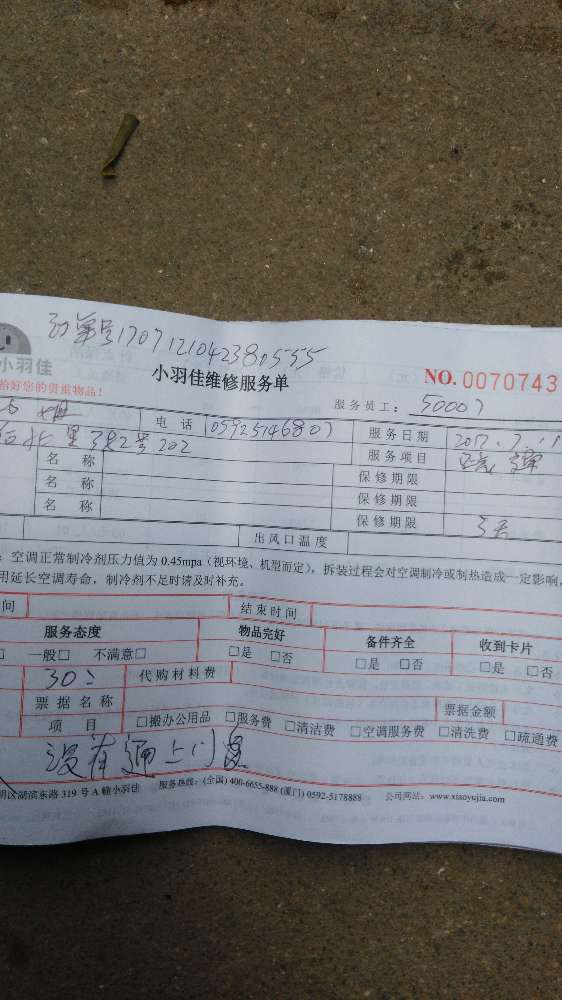 订单号170712104238０555
小羽佳
小羽佳维修服务单
NO. 0070743
恰好您的贵重物品！
服务员工： 50007
电 话 05925146807 服务日期
里382号202 服务项目
名 称 保修期限
名 称 保修期限
名 称 保修期限 3天
出风口温度
：空调正常制冷剂压力值为 0.45mpa（视环境、机型而定），拆装过程会对空调制冷或制热造成一定影响，
用延长空调寿命，制冷剂不足时请及时补充。
间 结束时间
服务态度 物品完好 备件齐全 收到卡片
□ 一般□ 不满意□ □是 □否 □是 □否 □是 □否
30 代购材料费
票据名称 票据金额
项 目 □搬办公用品 □服务费 □清洁费 □空调服务费 □清洗费 □疏通费
没有通上门费
明区湖滨东路 319 号 A 幢小羽佳 服务热线：(全国) 400-6655-888 (厦门) 0592-5178888 公司网站：www.xiaoyujia.com